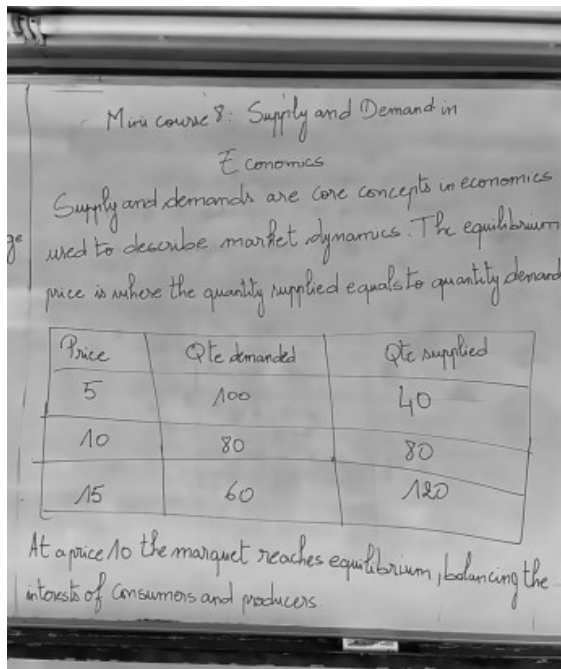 Mini course 8: Supply and Demand in
Economics
Supply and demands are core concepts in economics
ge
used to describe market dynamics. The equilibrium
price is where the quantity supplied equals to quantity demand
Price Qte demanded Qte supplied
5 100 40
10 80 80
15 60 120
At a price 10 the marquet reaches equilibrium, balancing the
interests of consumers and producers.